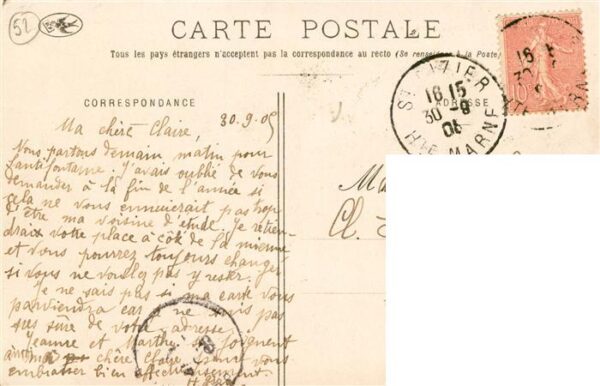 52
CARTE POSTALE
Tous les pays étrangers n'acceptent pas la correspondance au recto (Se renseigner à la Poste)
CORRESPONDANCE
ADRESSE
ST DIZIER
16 15
30 -9
05
HTE MARNE
30.9.05
Ma chère Claire,
Nous partons demain matin pour
Santifontaine. J'avais oublié de vous
demander à la fin de l'année si
cela ne vous ennuierait pas trop
d'être ma voisine d'étude. Je retien-
draix votre place à côté de la mienne
et vous pourrez toujours changer
si vous ne voulez pas y rester.
Je ne sais pas si ma carte vous
parviendra car je ne suis pas
très sûre de votre adresse.
Jeanne et Marthe se joignent
à moi chère Claire pour vous
embrasser bien affectueusement.
Ma
Cl.
10